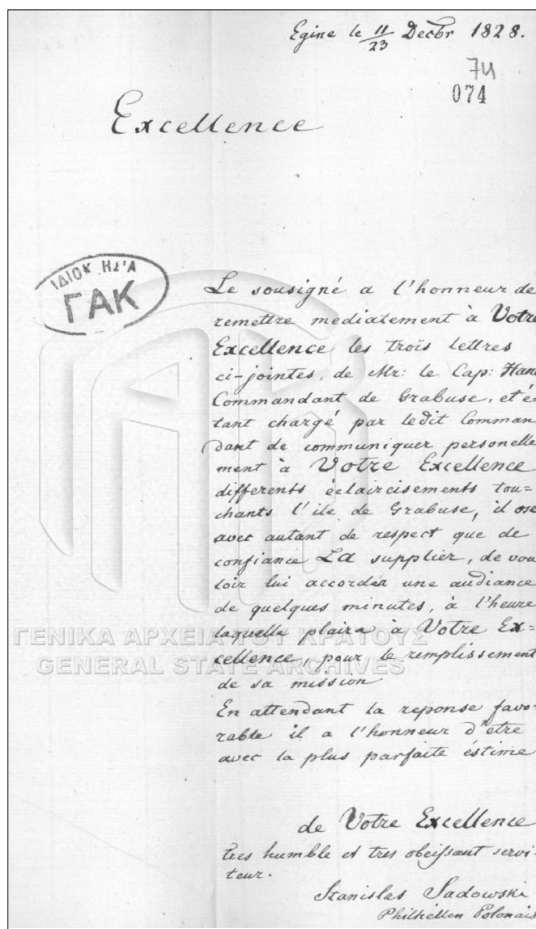 Egine le 11/23 Decbr 1828.
74
074
Excellence
ΙΔΙΟΚ ΗΣΊΑ
ΓΑΚ
Le sousigné a l'honneur de
remettre mediatement à Votre
Excellence les trois lettres
ci-jointes, de Mr: le Cap: Han
Commandant de Grabuse, et é-
tant chargé par ledit Comman
dant de communiquer personelle
ment à Votre Excellence
differents éclaircisements tou=
chants l'ile de Grabuse, il ose
avec autant de respect que de
confiance La supplier, de vou
loir lui accorder une audiance
de quelques minutes, à l'heure
laquelle plaira à Votre Ex=
cellence, pour le remplissement
de sa mission
En attendant la reponse favo-
rable il a l'honneur d'etre
avec la plus parfaite éstime
de Votre Excellence
tres humble et tres obeissant servi-
teur.
Stanislas Sadowski
Philhellen Polonais
ΓΕΝΙΚΑ ΑΡΧΕΙΑ ΤΟΥ ΚΡΑΤΟΥΣ
GENERAL STATE ARCHIVES